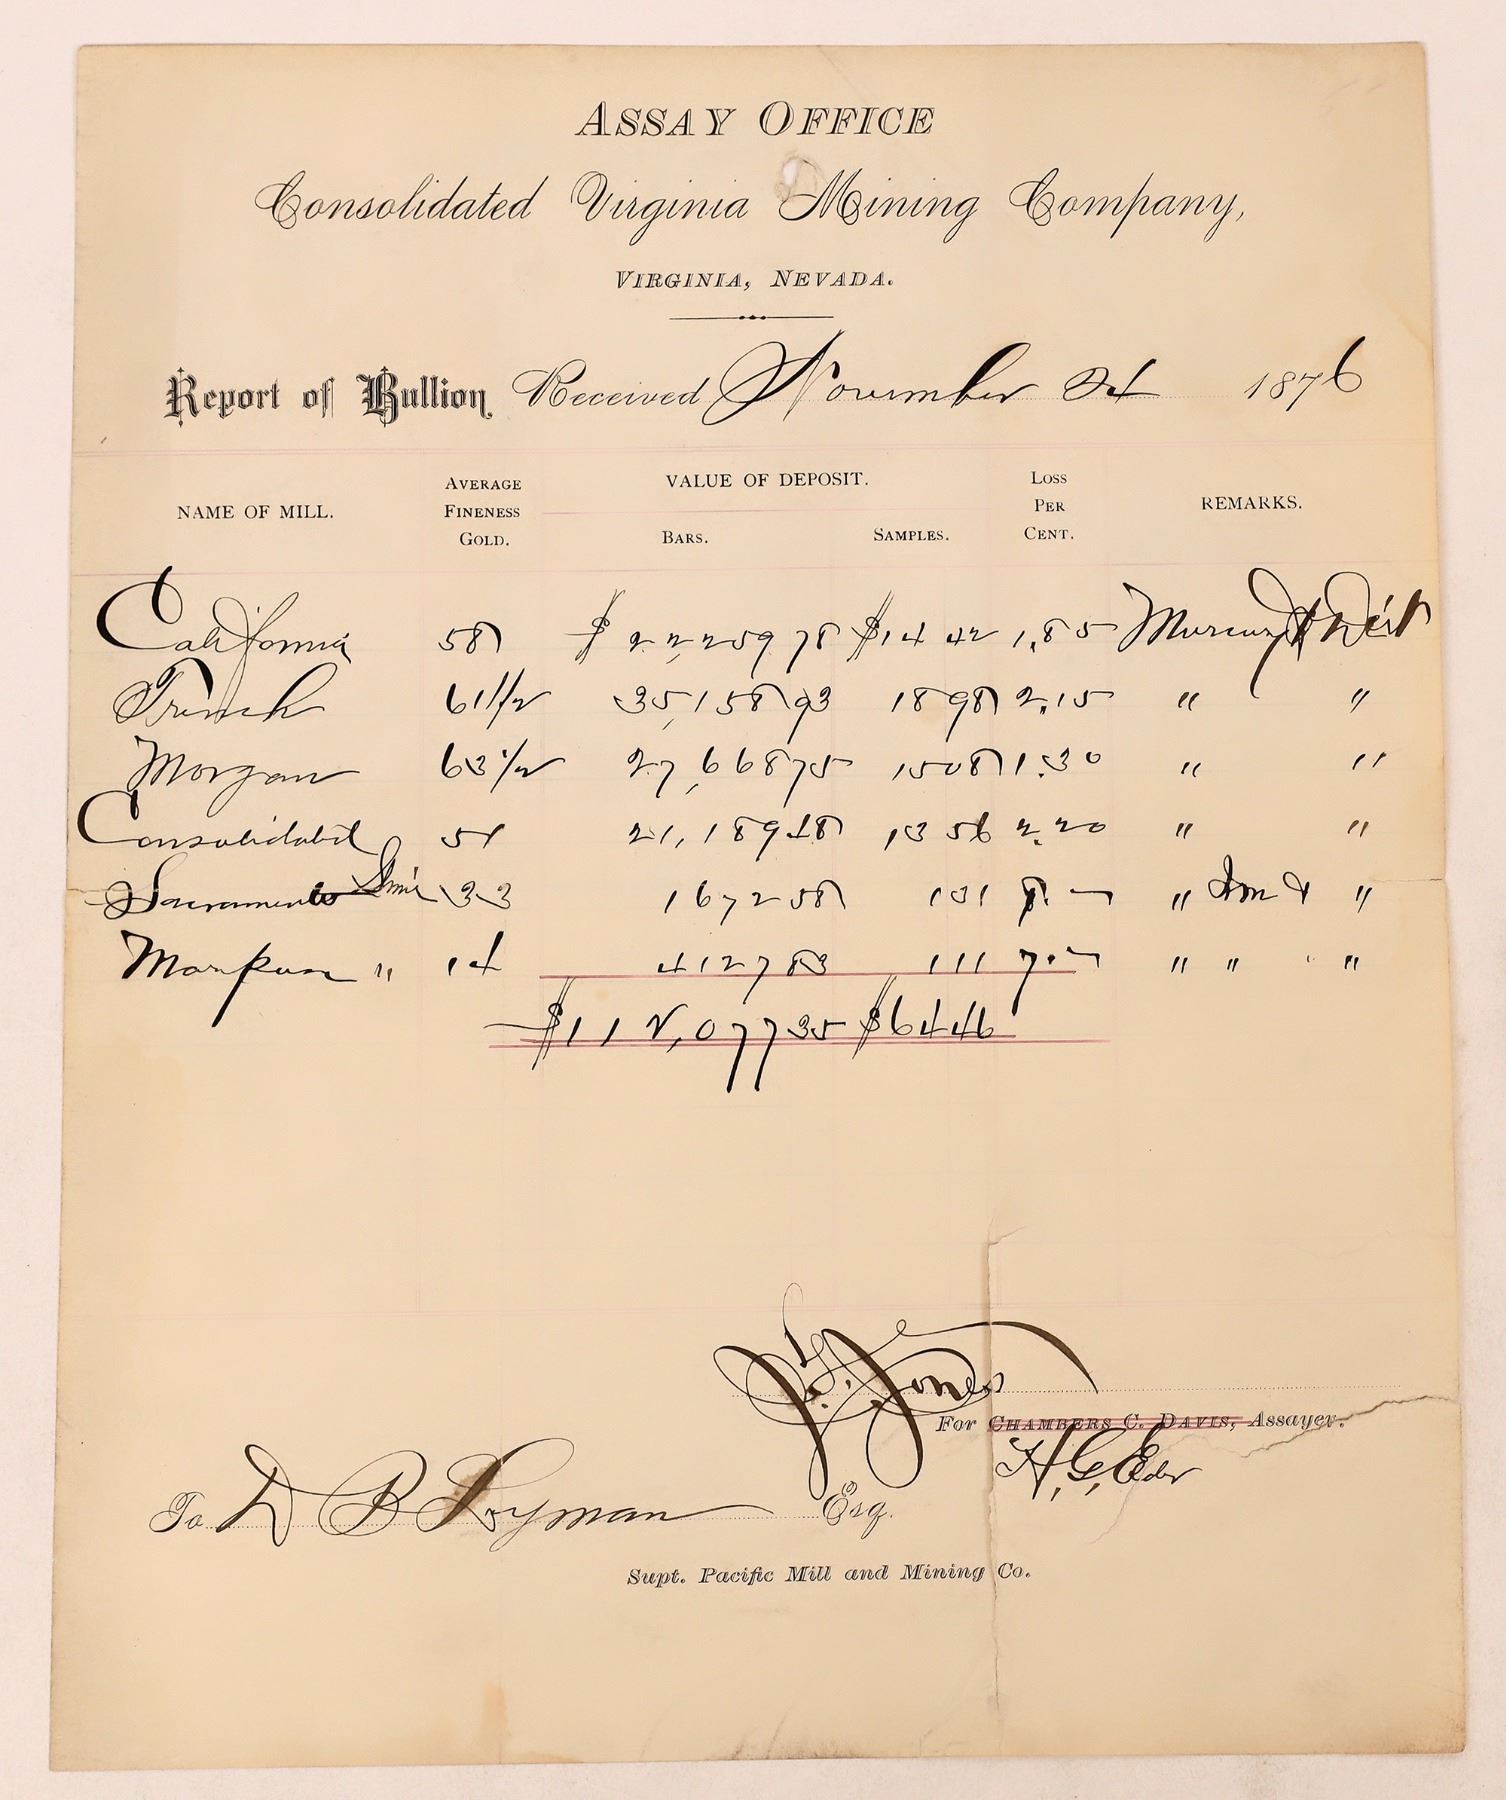 ASSAY OFFICE
Consolidated Virginia Mining Company,
VIRGINIA, NEVADA.
Report of Bullion Received November 24 1876
NAME OF MILL. AVERAGE FINENESS GOLD. VALUE OF DEPOSIT. BARS. SAMPLES. LOSS PER CENT. REMARKS.
California 58 $ 22,259 78 $14 42 1.85 Mercury & Dirt
French 61 1/2 35,158 93 18 98 2.15 " "
Morgan 63 1/2 27,668 75 15 08 1.30 " "
Consolidated 51 21,189 48 13 56 2.20 " "
Sacramento 33 1672 58 1 31 8. — " & "
Mariposa " 14 4127 83 1 11 7. — " " "
$112,077 35 $64 46
Jones
For CHAMBERS C. DAVIS, Assayer.
H. G.
To D B Lyman Esq.
Supt. Pacific Mill and Mining Co.